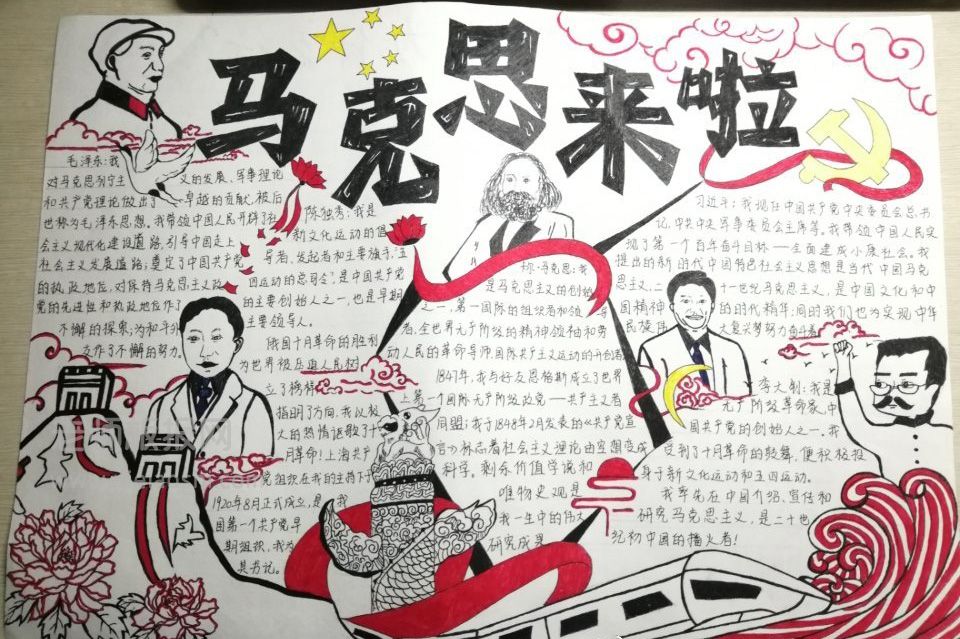 马克思来啦
毛泽东:我
对马克思列宁主义的发展、军事理论
和共产党理论做出了卓越的贡献,被后
世称为毛泽东思想。我带领中国人民开辟了社
会主义现代化建设道路,引导中国走上
社会主义发展道路;奠定了中国共产党
的执政地位,对保持马克思主义政
党的先进性和执政地位作了
不懈的探索;为和平外
交作了不懈的努力。
陈独秀:我是
新文化运动的倡
导者、发起者和主要旗手,"五
四运动的总司令",是中国共产党
的主要创始人之一,也是早期
主要领导人。
俄国十月革命的胜利
为世界被压迫人民树
立了榜样
指明了方向,我以极
大的热情讴歌了十
月革命!上海共产
党组织在我的主持下于
1920年8月正式成立,是我
国第一个共产党早
期组织,我为
其书记。
马克思:我
是马克思主义的创始
人之一,第一国际的组织者和领导
者,全世界无产阶级的精神领袖和劳
动人民的革命导师,国际共产主义运动的开创者
1847年,我与好友恩格斯成立了世界
上第一个国际无产阶级政党——共产主义者
同盟;我于1848年2月发表的《共产党宣
言》标志着社会主义理论由空想变成
科学。剩余价值学说和
唯物史观是
我一生中的伟大
研究成果
习近平:我现任中国共产党中央委员会总书
记,中共中央军事委员会主席等。我带领中国人民实
现了第一个百年奋斗目标——全面建成小康社会。我
提出的新时代中国特色社会主义思想是当代中国马克
思主义,二十一世纪马克思主义,是中国文化和中
国精神的时代精华;同时我们也为实现中华
民族伟大复兴梦努力奋斗着
李大钊:我是
无产阶级革命家,中
国共产党的创始人之一。我
受到了十月革命的鼓舞,便积极投
身于新文化运动和五四运动。
我率先在中国介绍、宣传和
研究马克思主义,是二十世
纪初中国的播火者!